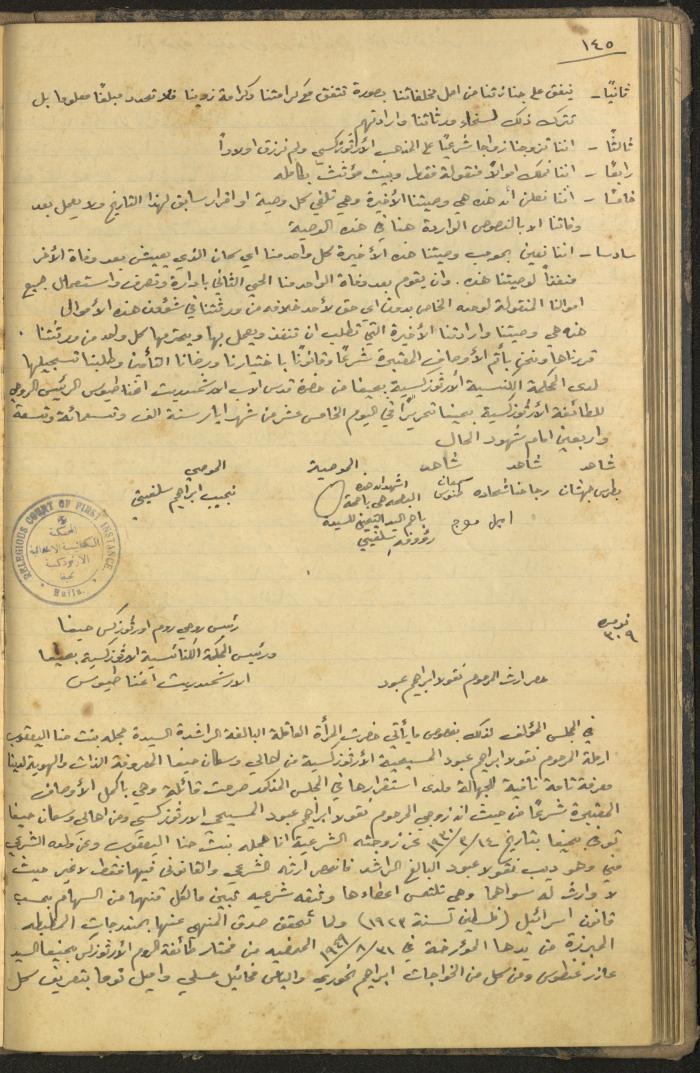 ١٤٥
ثانيًا - ينفق على جنازتنا من اصل مخلفاتنا بصورة تتفق مع كرامتنا وكرامة ذوينا فلا نحدد مبلغًا معلوما بل
نترك ذلك لسخاء ورثائنا وارادتهم
ثالثًا - اننا تزوجنا زواجا شرعيًا على المذهب الأرثوذكسي ولم نرزق اولاداً
رابعًا - اننا نملك اموالاً منقولة فقط وبيت مؤثث بكامله
خامسًا - اننا نعلن أن هذه هي وصيتنا الأخيرة وهي تلغي كل وصية او اقرار سابق لهذا التاريخ ولا يعمل بعد
وفاتنا الا بالنصوص الواردة هنا في هذه الوصية
سادسا - اننا نعين بموجب وصيتنا هذه الأخيرة كل واحد منا اي كان الذي يعيش بعد وفاة الأخر
منفذاً لوصيتنا هذه. وان يقوم بعد وفاة الواحد منا الحي الثاني بادارة وتصرف واستعمال جميع
اموالنا المنقولة لوحده الخاص بدون اي حق لأحد خلافه من ورثتنا في شؤون هذه الأموال
هذه هي وصيتنا وارادتنا الأخيرة التي نطلب ان تنفذ ويعمل بها ويحترمها كل واحد من ورثتنا.
قررناها ونحن بأتم الأوصاف المعتبرة شرعًا وقانونًا باختيارنا ورضانا التامين وطلبنا تسجيلها
لدى المحكمة الكنسية الأرثوذكسية بحيفا من حضرة قدس الاب الارشمندريت اغناطيوس الرئيس الروحي
للطائفة الأرثوذكسية بحيفا تحريراً في اليوم الخامس عشر من شهر ايار سنة الف وتسعمائة وتسعة
واربعين امام شهود الحال
شاهد شاهد شاهد الموصية الموصي
بطرس جهشان رجا حنا شحاده سمعان اشهد ان هذه البصمة هي باهم السيدة رؤوفه سلفيتي نجيب ابراهيم سلفيتي
اميل
RELEGIOUS COURT OF FIRST INSTANCE
المحكمة
الكنائسية الابتدائية
الارثوذكسية
حيفا
Haifa.
رئيس روحي روم اورثوذكس حيفا
ورئيس المحكمة الكنائسية الارثوذكسية بحيفا
الارشمندريت اغناطيوس
نومرو
٣٠٩
حصر ارث المرحوم نقولا ابراهيم عبود
في المجلس المؤلف لذلك بخصوص ما يأتي حضرت المرأة العاقلة البالغة الراشدة السيدة بنت حنا اليعقوب
ارملة المرحوم نقولا ابراهيم عبود المسيحية الأرثوذكسية من اهالي وسكان حيفا المعروفة الذات والهوية لدينا
معرفة تامة نافية للجهالة ولدى استقرارها في المجلس المنعقد صرحت قائلة وهي بأكمل الأوصاف
المعتبرة شرعًا من حيث ان زوجي المرحوم نقولا ابراهيم عبود المسيحي الارثوذكسي ومن اهالي وسكان حيفا
توفي بحيفا بتاريخ عن زوجته الشرعية انا بنت حنا اليعقوب وعن ولده الشرعي
مني وهو ديب نقولا عبود البالغ الراشد فانحصر ارثه الشرعي والقانوني فيهما فقط لا غير حيث
لا وارث له سواهما وهي تلتمس اعطاءها وثيقة شرعية تبين ما لكل منهما من السهام بحسب
قانون اسرائيل (فلسطين لسنة ١٩٢٣) ولما تحقق صدق المنهى عنها بمندرجات المضبطه
المبرزة من يدها المؤرخة في ٣١/٨/١٩٤٩ المعطيه من مختار طائفة الروم الأرثوذكس بحيفا السيد
عازر ومن كل من الخواجات ابراهيم الخوري والياس مخائيل علي واميل توما بتعريف كل